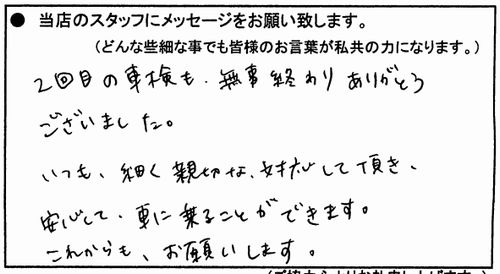 ● 当店のスタッフにメッセージをお願い致します。
(どんな些細な事でも皆様のお言葉が私共の力になります。)
2回目の車検も、無事終わりありがとう
ございました。
いつも、細く親切な、対応して頂き、
安心して、車に乗ることができます。
これからも、お願いします。